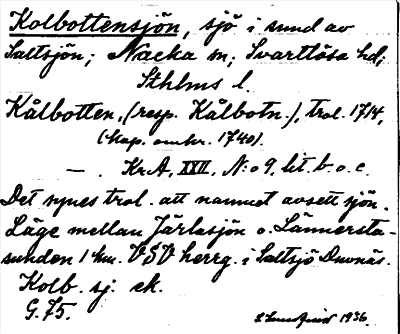 Kolbottensjön, sjö i sund av
Saltsjön; Nacka sn; Svartlösa hd;
Sthlms l.
Kålbotten, (resp. Kålbotn.), trol. 1714,
(Kop. omkr. 1740).
— . Kr.A, XXII, N:o 9, lit. b. o. c.
Det synes trol. att namnet avsett sjön.
Läge mellan Järlasjön o. Lännersta-
sunden 1 km. VSV herrg. i Saltsjö Duvnäs.
Kolb. sj. ek.
G. 75.
1936.